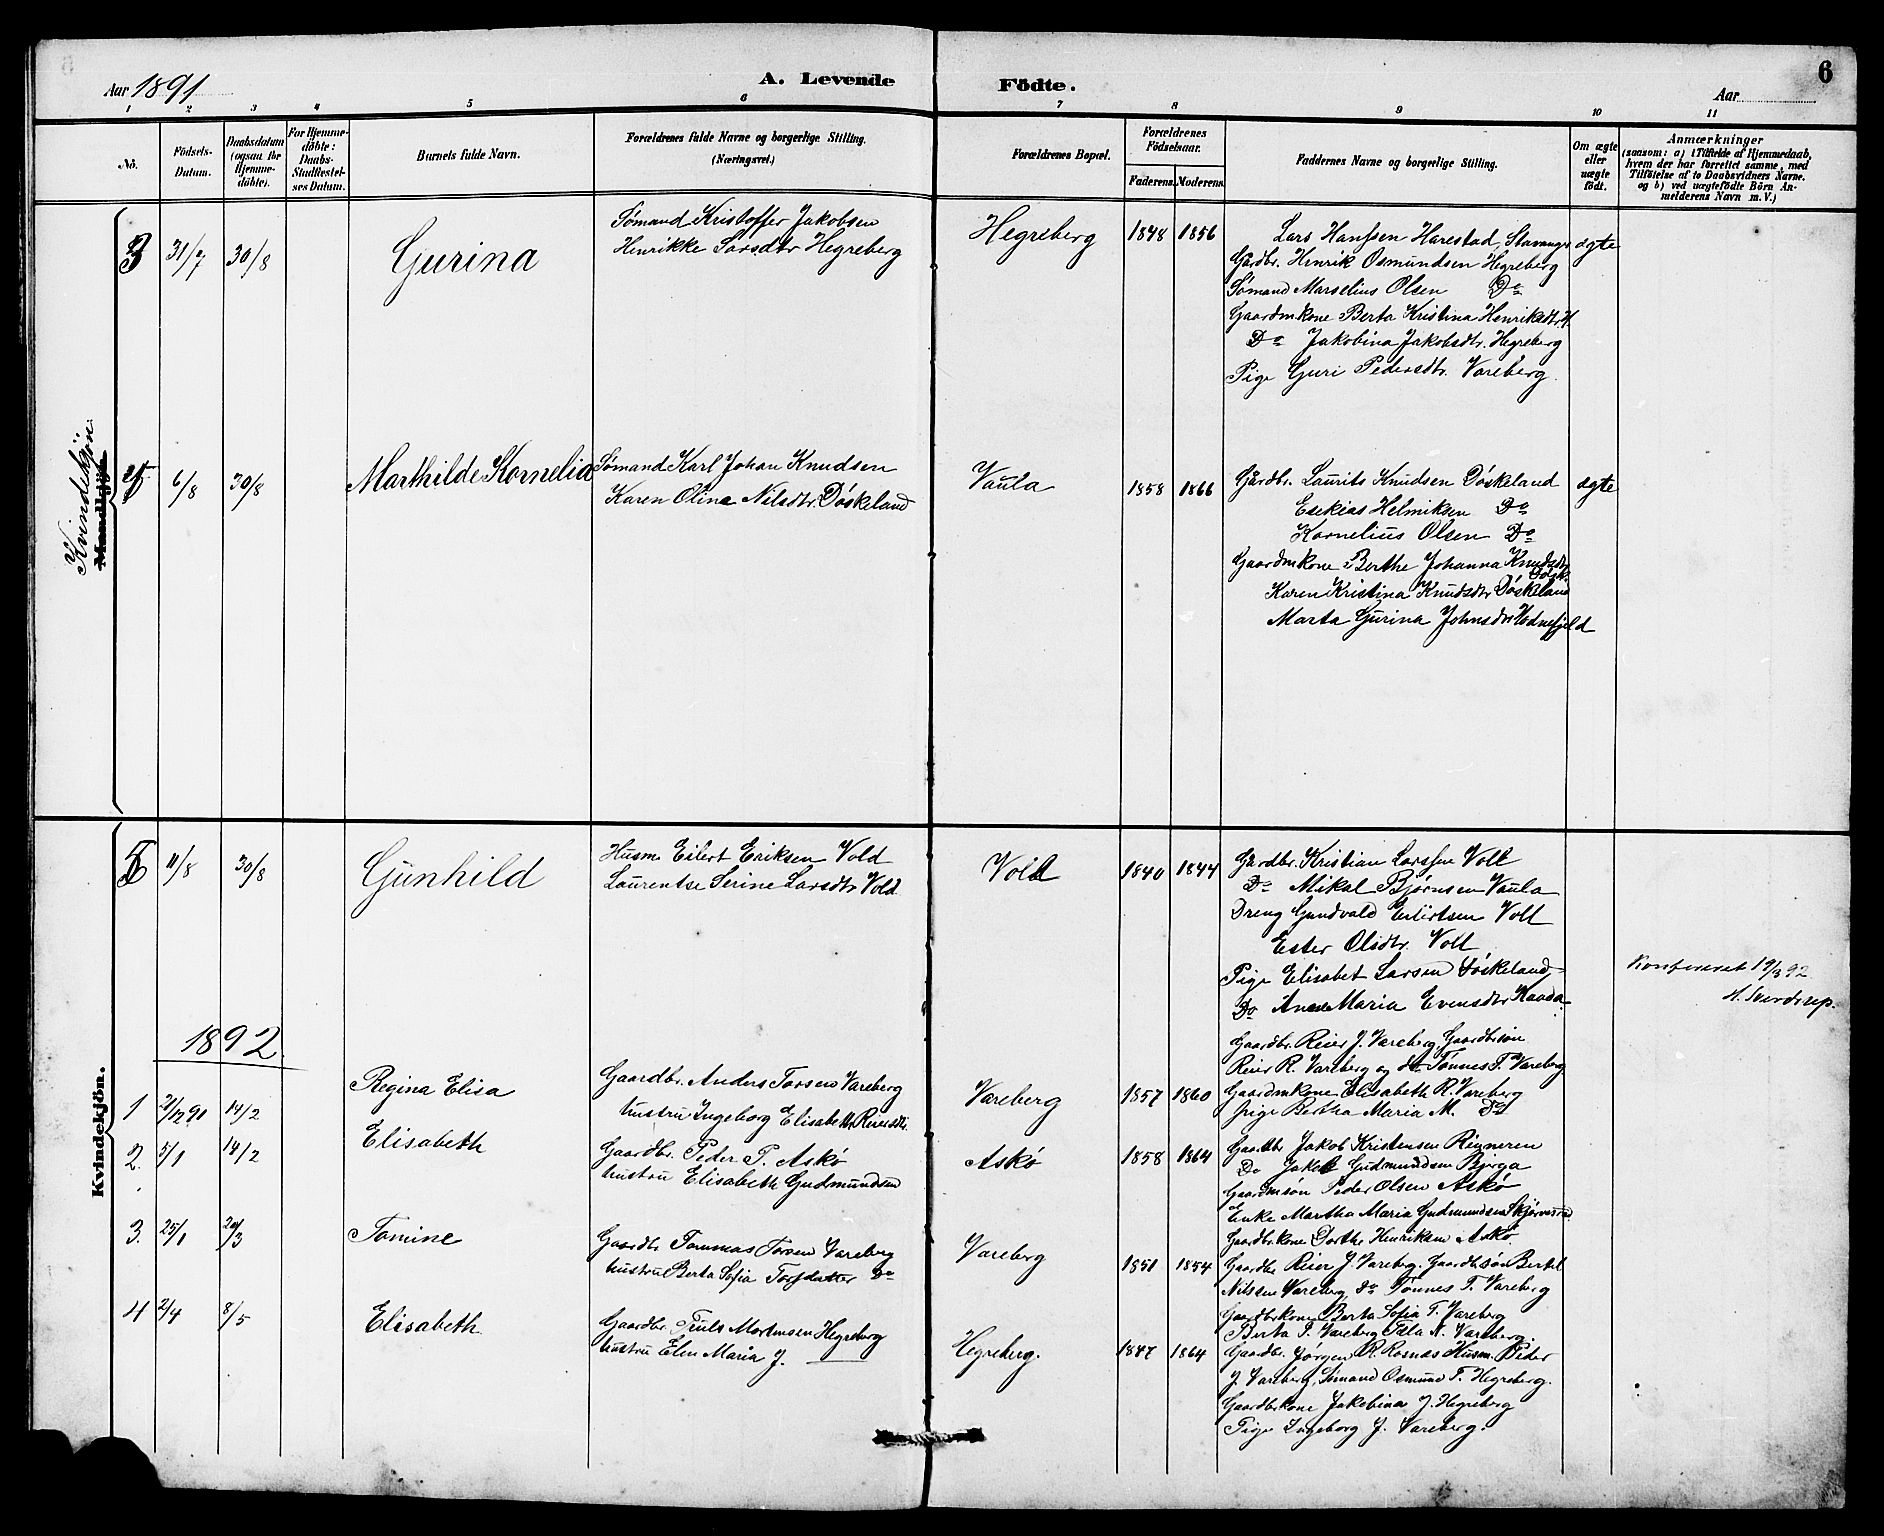 Aar 1891
A. Levende Födte.
Aar
6
1 2 3 4 5 6 7 8 9 10 11
No.
Födsels-
Datum.
Daabsdatum
(ogsaa for
Hjemme-
döbte).
For Hjemme-
döbte:
Daabs-
Stadfæstel-
ses Datum.
Barnets fulde Navn.
Forældrenes fulde Navne og borgerlige Stilling.
(Næringsvei.)
Forældrenes Bopæl.
Forældrenes
Födselsaar.
Faderens. Moderens.
Faddernes Navne og borgerlige Stilling.
Om ægte
eller
uægte
födt.
Anmærkninger
(saasom: a) i Tilfælde af Hjemmedaab,
hvem der har forrettet samme, med
Tilföielse af to Daabsvidners Navne.
og b) ved uægtefödte Börn An-
melderens Navn m. V.)
Kvindekjön.
Mandkjön.
3 31/7 30/8 Gurina
Sømand Kristoffer Jakobsen
Henrikke Larsdtr Hegreberg
Hegreberg 1848 1856
Lars Hanssen Harestad, Stavanger
Gårdbr. Henrik Osmundsen Hegreberg
Sømand Marselius Olsen Do
Gaardmkone Berta Kristina Henriksdtr. H.
Do Jakobina Jakobsdtr. Hegreberg
Pige Guri Pedersdtr. Vareberg.
ægte
4 6/8 30/8 Marthilde Kornelia
Sømand Karl Johan Knudsen
Karen Oline Nilsdtr. Døskeland
Vaula 1858 1866
Gårdbr. Laurits Knudsen Døskeland
Esekias Helmiksen Do
Kornelius Olsen Do
Gaardmkone Berthe Johanna Knudsdtr
Døsk.
Karen Kristina Knudsdtr Døskeland
Marta Gurina Johnsdtr Vodnefjeld
ægte
Kvindekjön.
5 11/8 30/8 Gunhild
Husm. Eilert Eriksen Vold
Laurentse Serine Larsdtr Vold
Vold 1840 1844
Gårdbr. Kristian Larssen Voll
Do Mikal Bjørnsen Vaula
Dreng Gundvald Eilertsen Voll
Ester Olsdtr. Voll
Pige Elisabet Larsen Døskeland
Do Anne Maria Evensdtr Kaada
Konfereret 19/3 92
H. Sverdrup.
1892.
1 2/12 91 14/2 Regina Elisa
Gaardbr. Anders Torsen Vareberg
Hustru Ingeborg Elisabeth Reiersdtr.
Vareberg 1857 1860
Gaardbr. Reier J. Vareberg, Gaardbrsøn
Reier R. Vareberg og do Tønnes T. Vareberg
Gaardmkone Elisabeth R. Vareberg
Pige Bertha Maria M. Do
2. 5/1 14/2 Elisabeth
Gaardbr. Peder P. Askø
Hustru Elisabeth Gudmundsen
Askø 1858 1864
Gaardbr Jakob Kristensen Reyneren
Do Jakob Gudmundsen Berga
Gaardmsøn Peder Olsen Askø
Enke Martha Maria Gudmundsen Skjørnesund
Gaardbrkone Dorthe Henriksen Askø
3. 25/1 20/3 Tomine
Gaardbr Tommas Torsen Vareberg
Hustru Berta Sofia Torsdatter Do
Vareberg 1851 1854
Gaardbr Reier J. Vareberg. Gaardbrsøn Bertel
Nilssen Vareberg, do Tønnes T. Vareberg
Gaardbrkone Berta Sofia T. Vareberg
Berta T. Vareberg Tala N. Vareberg.
4 2/4 8/5 Elisabeth.
Gaardbr. Truls Mortensen Hegreberg
Hustru Elen Maria J.
Hegreberg. 1847 1864
Gaardbr. Jørgen R. Rosnæs Husm. Peder
J. Vareberg, Sømand Osmund T. Hegreberg.
Gaardbrkone Jakobina J. Hegreberg
Pige Ingeborg J. Vareberg.